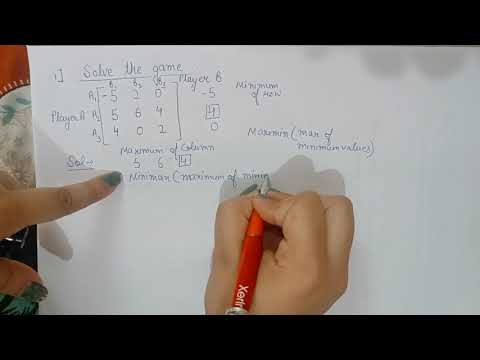 1] Solve the game
B1 B2 B3 Player B
A1 -5 2 0 -5 Minimum of row
Player A A2 5 6 4 4
A3 4 0 2 0
Maximin (max of minimum values)
Maximum of Column
Sol→ 5 6 4
Minimax (maximum of minim
Xerin